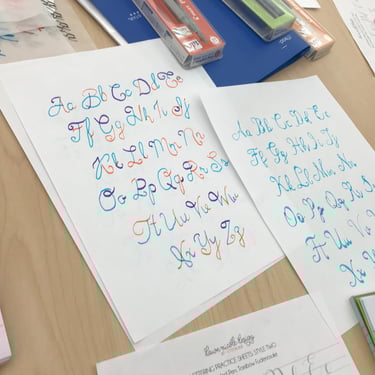 Aa Bb Cc Dd Ee
Ff Gg Hh Ii Jj
Kk Ll Mm Nn
Oo Pp Qq Rr Ss
Tt Uu Vv Ww
Xx Yy Zz
Aa Bb Cc Dd Ee
Ff Gg Hh Ii Jj
Kk Ll Mm Nn
Oo Pp Qq Rr Ss
Tt Uu Vv
Xx Yy
LETTERING PRACTICE SHEETS: STYLE TWO
Pen: Tombow Fudenosuke